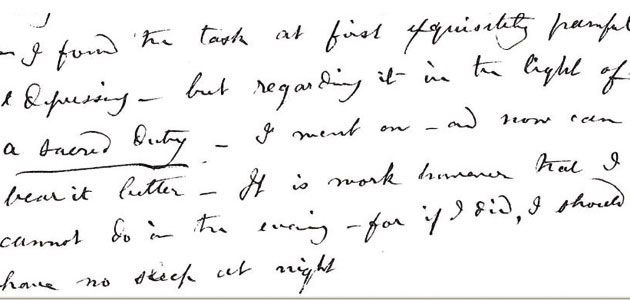 – I found the task at first exquisitely painful
& depressing – but regarding it in the light of
a sacred duty – I went on – and now can
bear it better – It is work however that I
cannot do in the evening – for if I did, I should
have no sleep at night